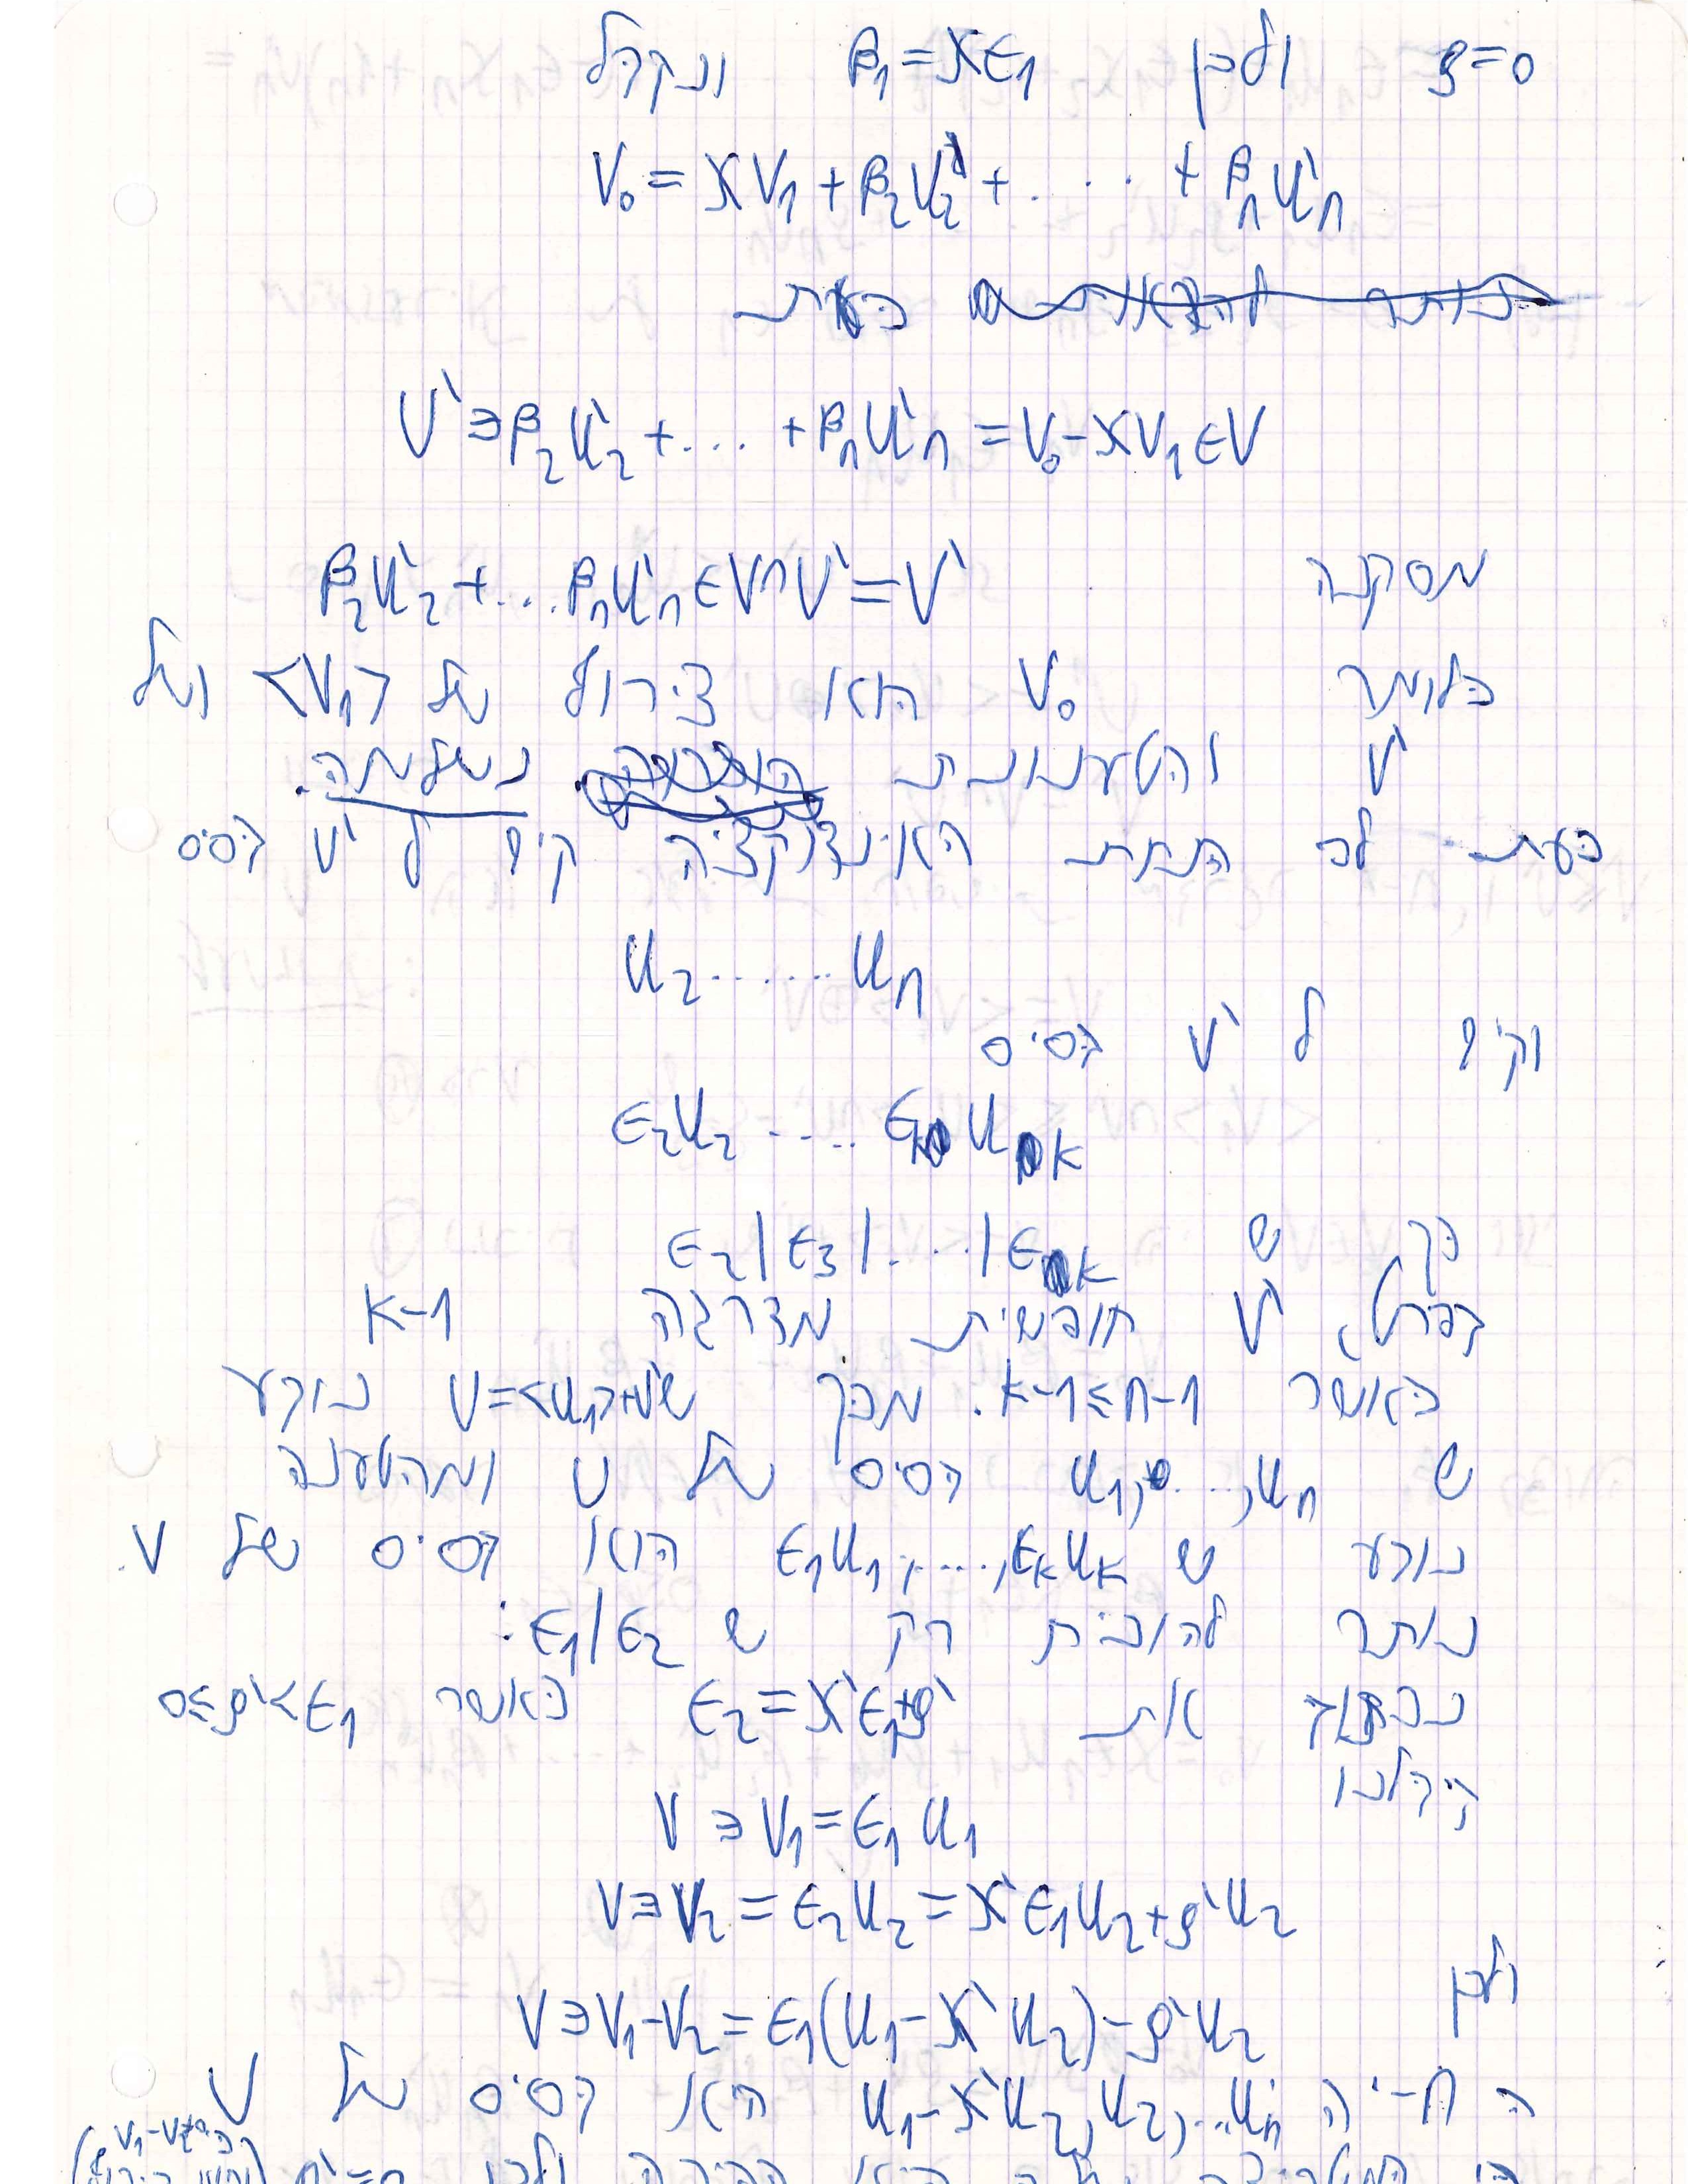 ρ=0 ולכן β₁=Xϵ₁ ונקבל
V₀=XV₁+β₂U'₂+....+βₙU'ₙ
נותר להראות כעת
U'∋β₂U'₂+....+βₙU'ₙ=V₀-XV₁∈V
מסקנה β₂U'₂+....βₙU'ₙ∈V∩U'=V'
כלומר V₀ הוא צירוף של <V₁> ושל
V' והטענה נשלמה.
כעת לפי הנחת האינדוקציה קיים ל U' בסיס
U₂......Uₙ
וקיים ל V' בסיס
ϵ₂U₂.....ϵₖUₖ
כך ש ϵ₂|ϵ₃|....|ϵₖ
בפרט, V' חופשית מדרגה k-1
כאשר k-1≤n-1. מכך ש U=<u₁>+U' נובע
ש u₁,....,uₙ בסיס של U ומהטענה
נובע ש ϵ₁u₁,....,ϵₖuₖ הוא בסיס של V.
נותר להוכיח רק ש ϵ₁|ϵ₂:
נכתוב את ϵ₂=X'ϵ₁+ρ' כאשר 0≤ρ'<ϵ₁
קיבלנו
V∋V₁=ϵ₁U₁
V∋V₂=ϵ₂U₂=X'ϵ₁U₂+ρ'U₂
ולכן
V∋V₁-V₂=ϵ₁(U₁-X'U₂)-ρ'U₂
ה n-יה U₁-X'U₂,U₂,...Uₙ היא בסיס של U